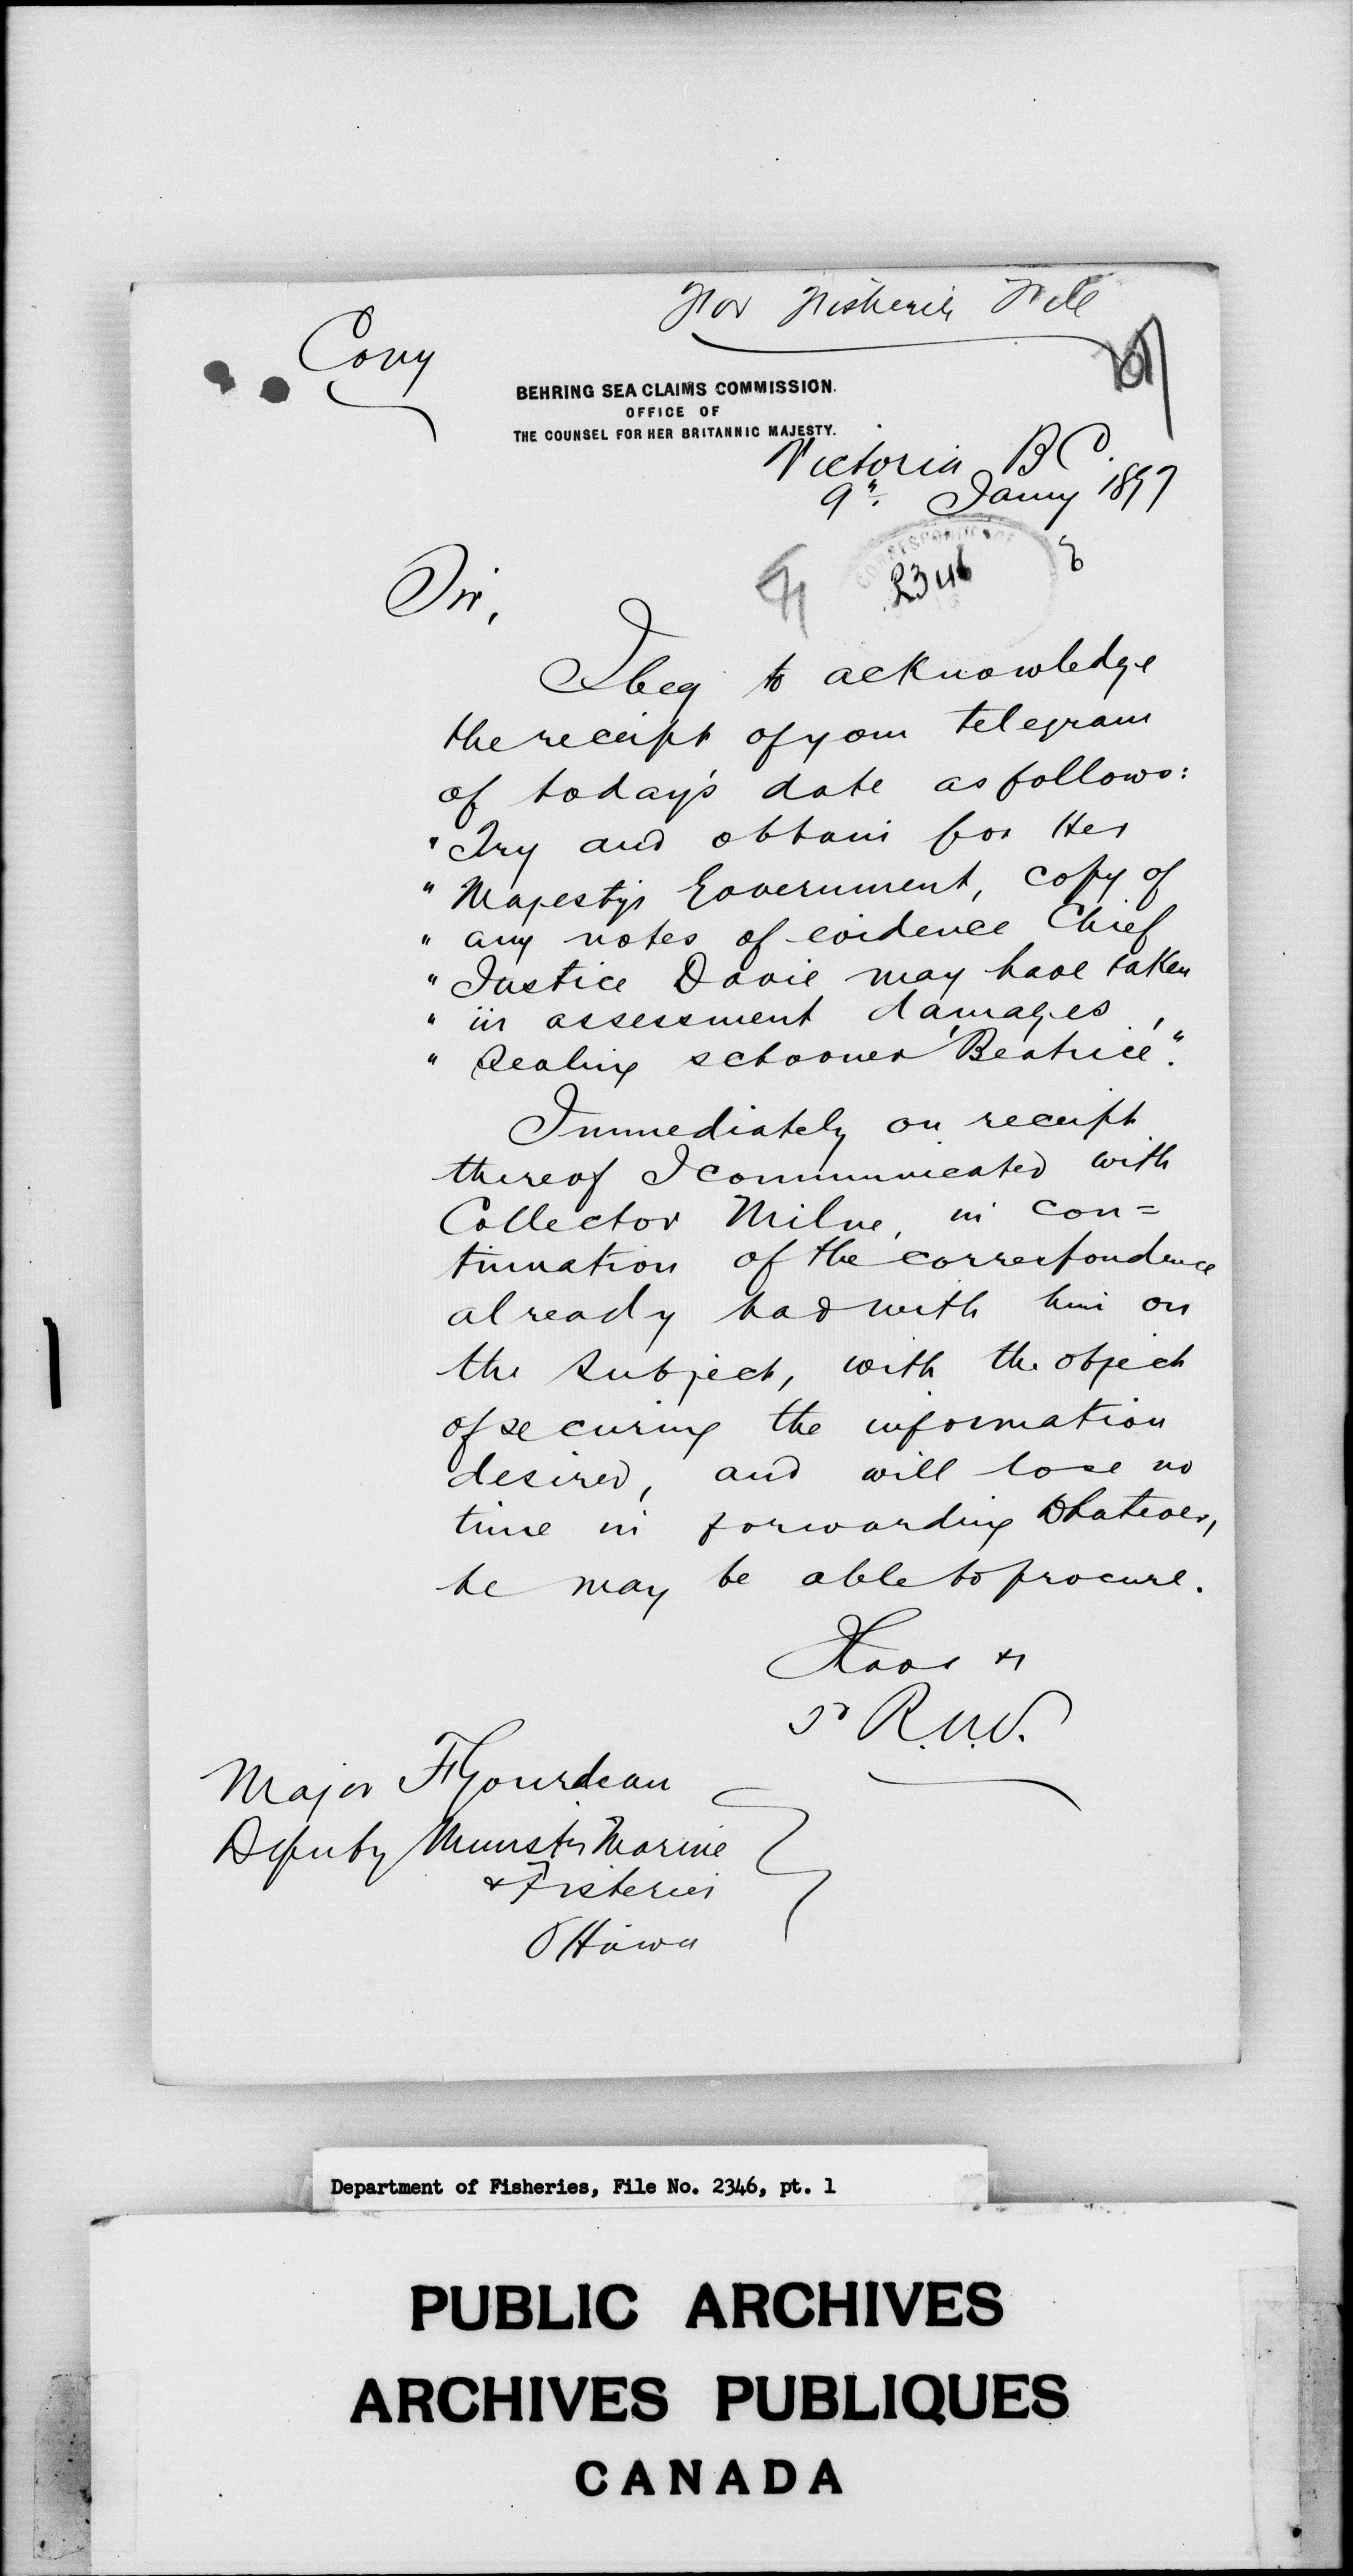 For Fisheries File
Copy
BEHRING SEA CLAIMS COMMISSION.
OFFICE OF
THE COUNSEL FOR HER BRITANNIC MAJESTY.
Victoria B C.
9". Jany 1897
CORRESPONDENCE
2346
Sir,
I beg to acknowledge
the receipt of your telegram
of today's date as follows:
"Try and obtain for Her
" Majesty's Government, copy of
" any notes of evidence Chief
" Justice Davie may have taken
" in assessment damages,
" Sealing schooner 'Beatrice'."
Immediately on receipt
thereof I communicated with
Collector Milne, in con=
tinuation of the correspondence
already had with him on
the subject, with the object
of securing the information
desired, and will lose no
time in forwarding whatever,
he may be able to procure.
I have &
R.N.V.
Major F Gourdeau
Deputy Minister Marine
& Fisheries
Ottawa
Department of Fisheries, File No. 2346, pt. 1
PUBLIC ARCHIVES
ARCHIVES PUBLIQUES
CANADA